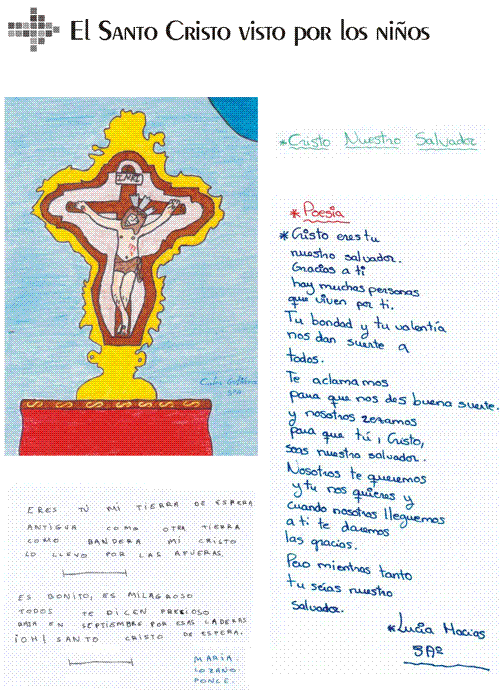 El Santo Cristo visto por los niños
INRI
*Cristo Nuestro Salvador
*Poesia
*Cristo eres tu
nuestro salvador.
Gracias a ti
hay muchas personas
que viven por ti.
Tu bondad y tu valentía
nos dan suerte a
todos.
Te aclamamos
para que nos des buena suerte.
y nosotros rezamos
para que tú, Cristo,
seas nuestro salvador.
Nosotros te queremos
y tu nos quieres y
cuando nosotros lleguemos
a ti te daremos
las gracias.
Pero mientras tanto
tu seías nuestro
salvador.
*Lucia Macias
3Aº
3ºA
ERES TÚ MI TIERRA DE ESPERA
ANTIGUA COMO OTRA TIERRA
COMO BANDERA MI CRISTO
LO LLEVO POR LAS AFUERAS.
ES BONITO, ES MILAGROSO
TODOS TE DICEN PRECIOSO
BAJA EN SEPTIEMBRE POR ESAS LADERAS
¡OH! SANTO CRISTO DE ESPERA.
MARÍA
LOZANO
PONCE.